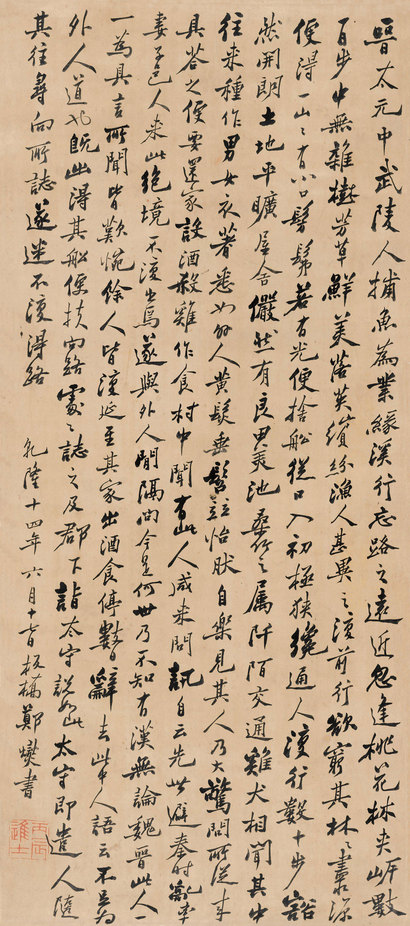 晉太元中武陵人捕魚為業緣溪行忘路之遠近忽逢桃花林夾岸數
百步中無雜樹芳草鮮美落英繽紛漁人甚異之復前行欲窮其林〻盡水源
便得一山〻有小口髣髴若有光便捨船從口入初極狹纔通人復行數十步豁
然開朗土地平曠屋舍儼然有良田美池桑竹之屬阡陌交通雞犬相聞其中
往來種作男女衣著悉如外人黃髮垂髫竝怡然自樂見其人乃大驚問所從來
具答之便要還家設酒殺雞作食村中聞有此人咸來問訊自云先世避秦時亂率
妻子邑人來此絕境不復出焉遂與外人間隔問今是何世乃不知有漢無論魏晉此人一
一為具言所聞皆歎惋餘人皆復延至其家出酒食停數日辭去此中人語云不足為
外人道也既出得其船便扶向路處〻誌之及郡下詣太守說如此太守即遣人隨
其往尋向所誌遂迷不復得路
乾隆十四年六月十日板橋鄭燮書
丙辰進士